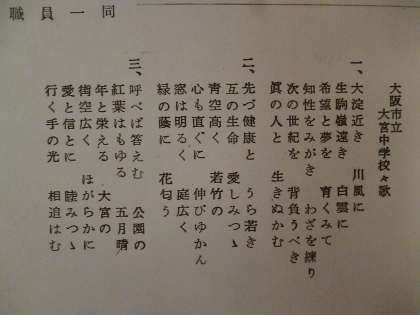 職員一同
大阪市立
大宮中学校々歌
一、大淀近き 川風に
生駒嶺遠き 白雲に
希望と夢を 育くみて
知性をみがき わざを練り
次の世紀を 背負うべき
眞の人と 生きぬかむ
二、先づ健康と うら若き
互の生命 愛しみつゝ
青空高く 若竹の
心も直ぐに 伸びゆかん
窓は明るく 庭広く
緑の蔭に 花匂う
三、呼べば答えむ 公園の
紅葉はもゆる 五月晴
年と栄える 大宮の
街空広く ほがらかに
愛と信とに 睦みつゝ
行く手の光 相追はむ